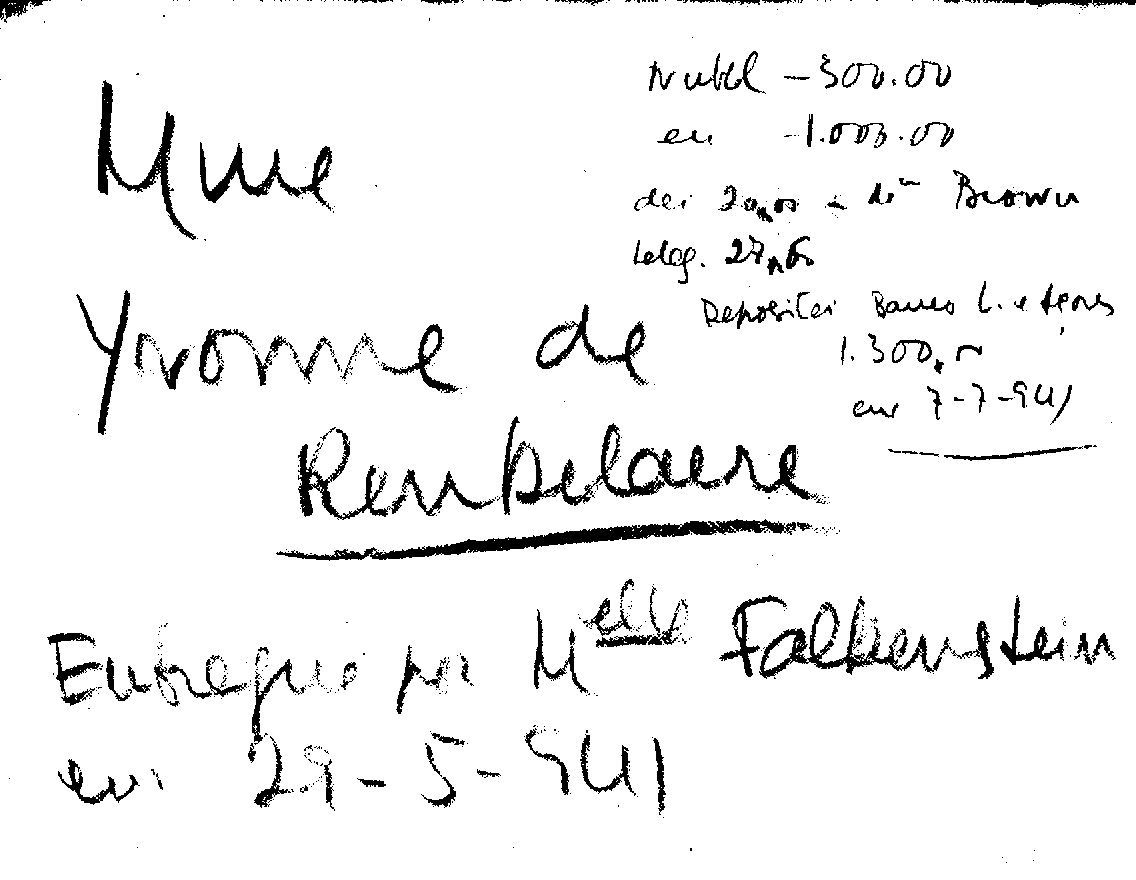 Mme
Yvonne de
Renkelaere
Entregue por Melle Falkenstein
em 29-5-941
-300.00
em -1.000.00
dei 20,00 - dr Brown
teleg. 27,60
Depositei Banco L. e Açores
1.300,00
em 7-7-941